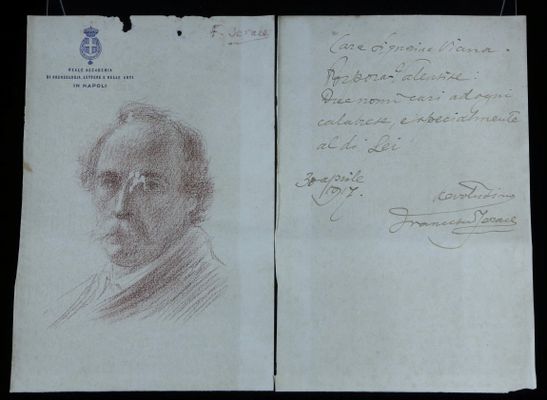 F. Jerace
REALE ACCADEMIA
DI ARCHEOLOGIA, LETTERE E BELLE ARTI
IN NAPOLI
Care Signore Viana.
Porpora? Talentise:
Due nomi cari ad ogni
calabrese, e specialmente
al di Lei
30 aprile
1917.
devotissimo
Francesco Jerace